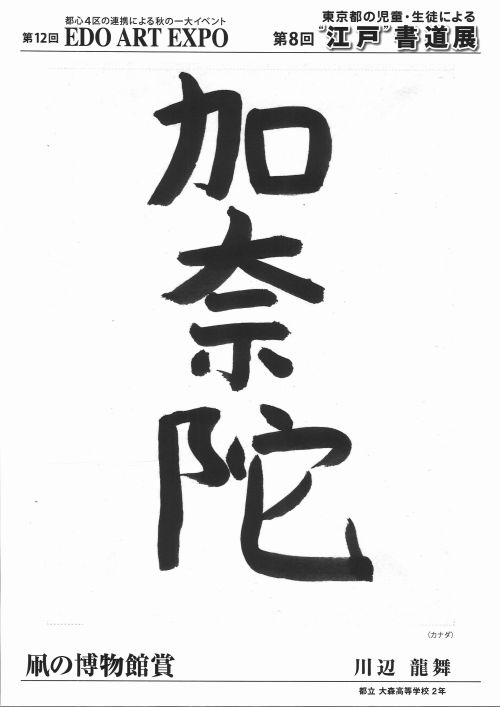 都心4区の連携による秋の一大イベント
第12回 EDO ART EXPO
東京都の児童・生徒による
第8回 “江戸”書道展
加奈陀
(カナダ)
凧の博物館賞
川辺 龍舞
都立 大森高等学校 2年